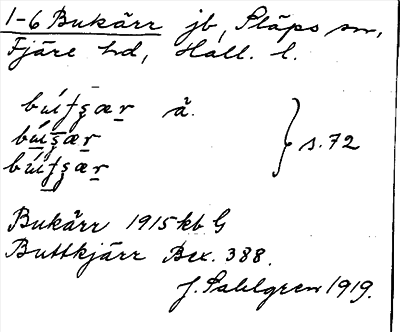 1-6 Bukärr jb, Släps sn,
Fjäre hd, Hall. l.
ä.
} s. 72
Bukärr 1915 kb G
Buttkjärr Bex. 388.
J. Sahlgren 1919.